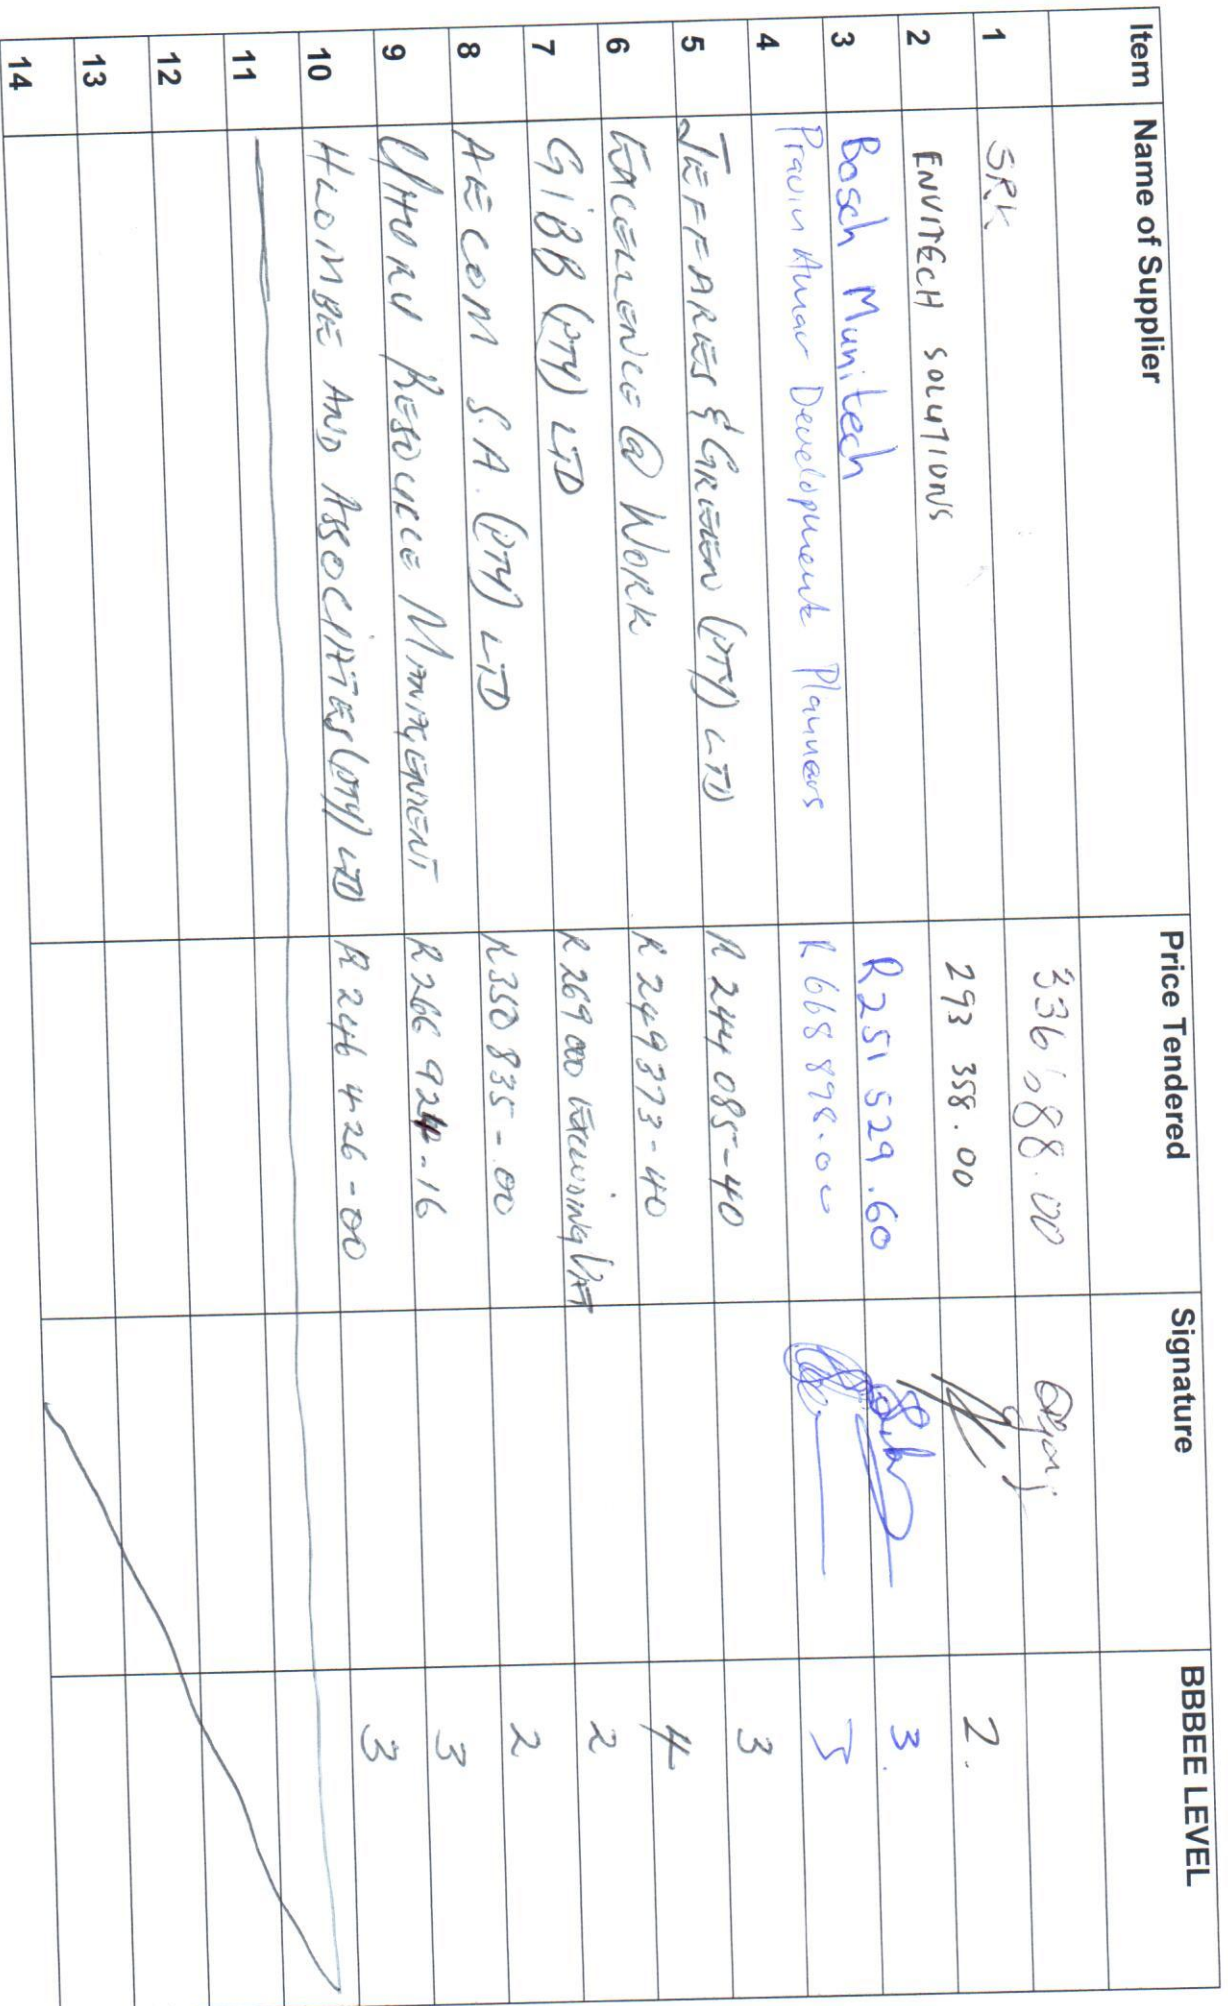 Item Name of Supplier Price Tendered Signature BBBEE LEVEL
1 SRK 336 188.00
2 ENVITECH SOLUTIONS 293 358.00 2.
3 Bosch Munitech R251 529.60 3.
4 Pravin Amar Development Planners R 668 898.00 3
5 JEFFARES & GREEN (PTY) LTD R 244 085-40 3
6 EXCELLENCE @ WORK R 249373-40 4
7 GIBB (PTY) LTD R 269 000 EXCLUDING VAT 2
8 AECOM S.A. (PTY) LTD R350 835-00 2
9 UHURU RESOURCE MANAGEMENT R266 924-16 3
10 HLOMBE AND ASSOCIATES (PTY) LTD R 246 426-00 3
11
12
13
14